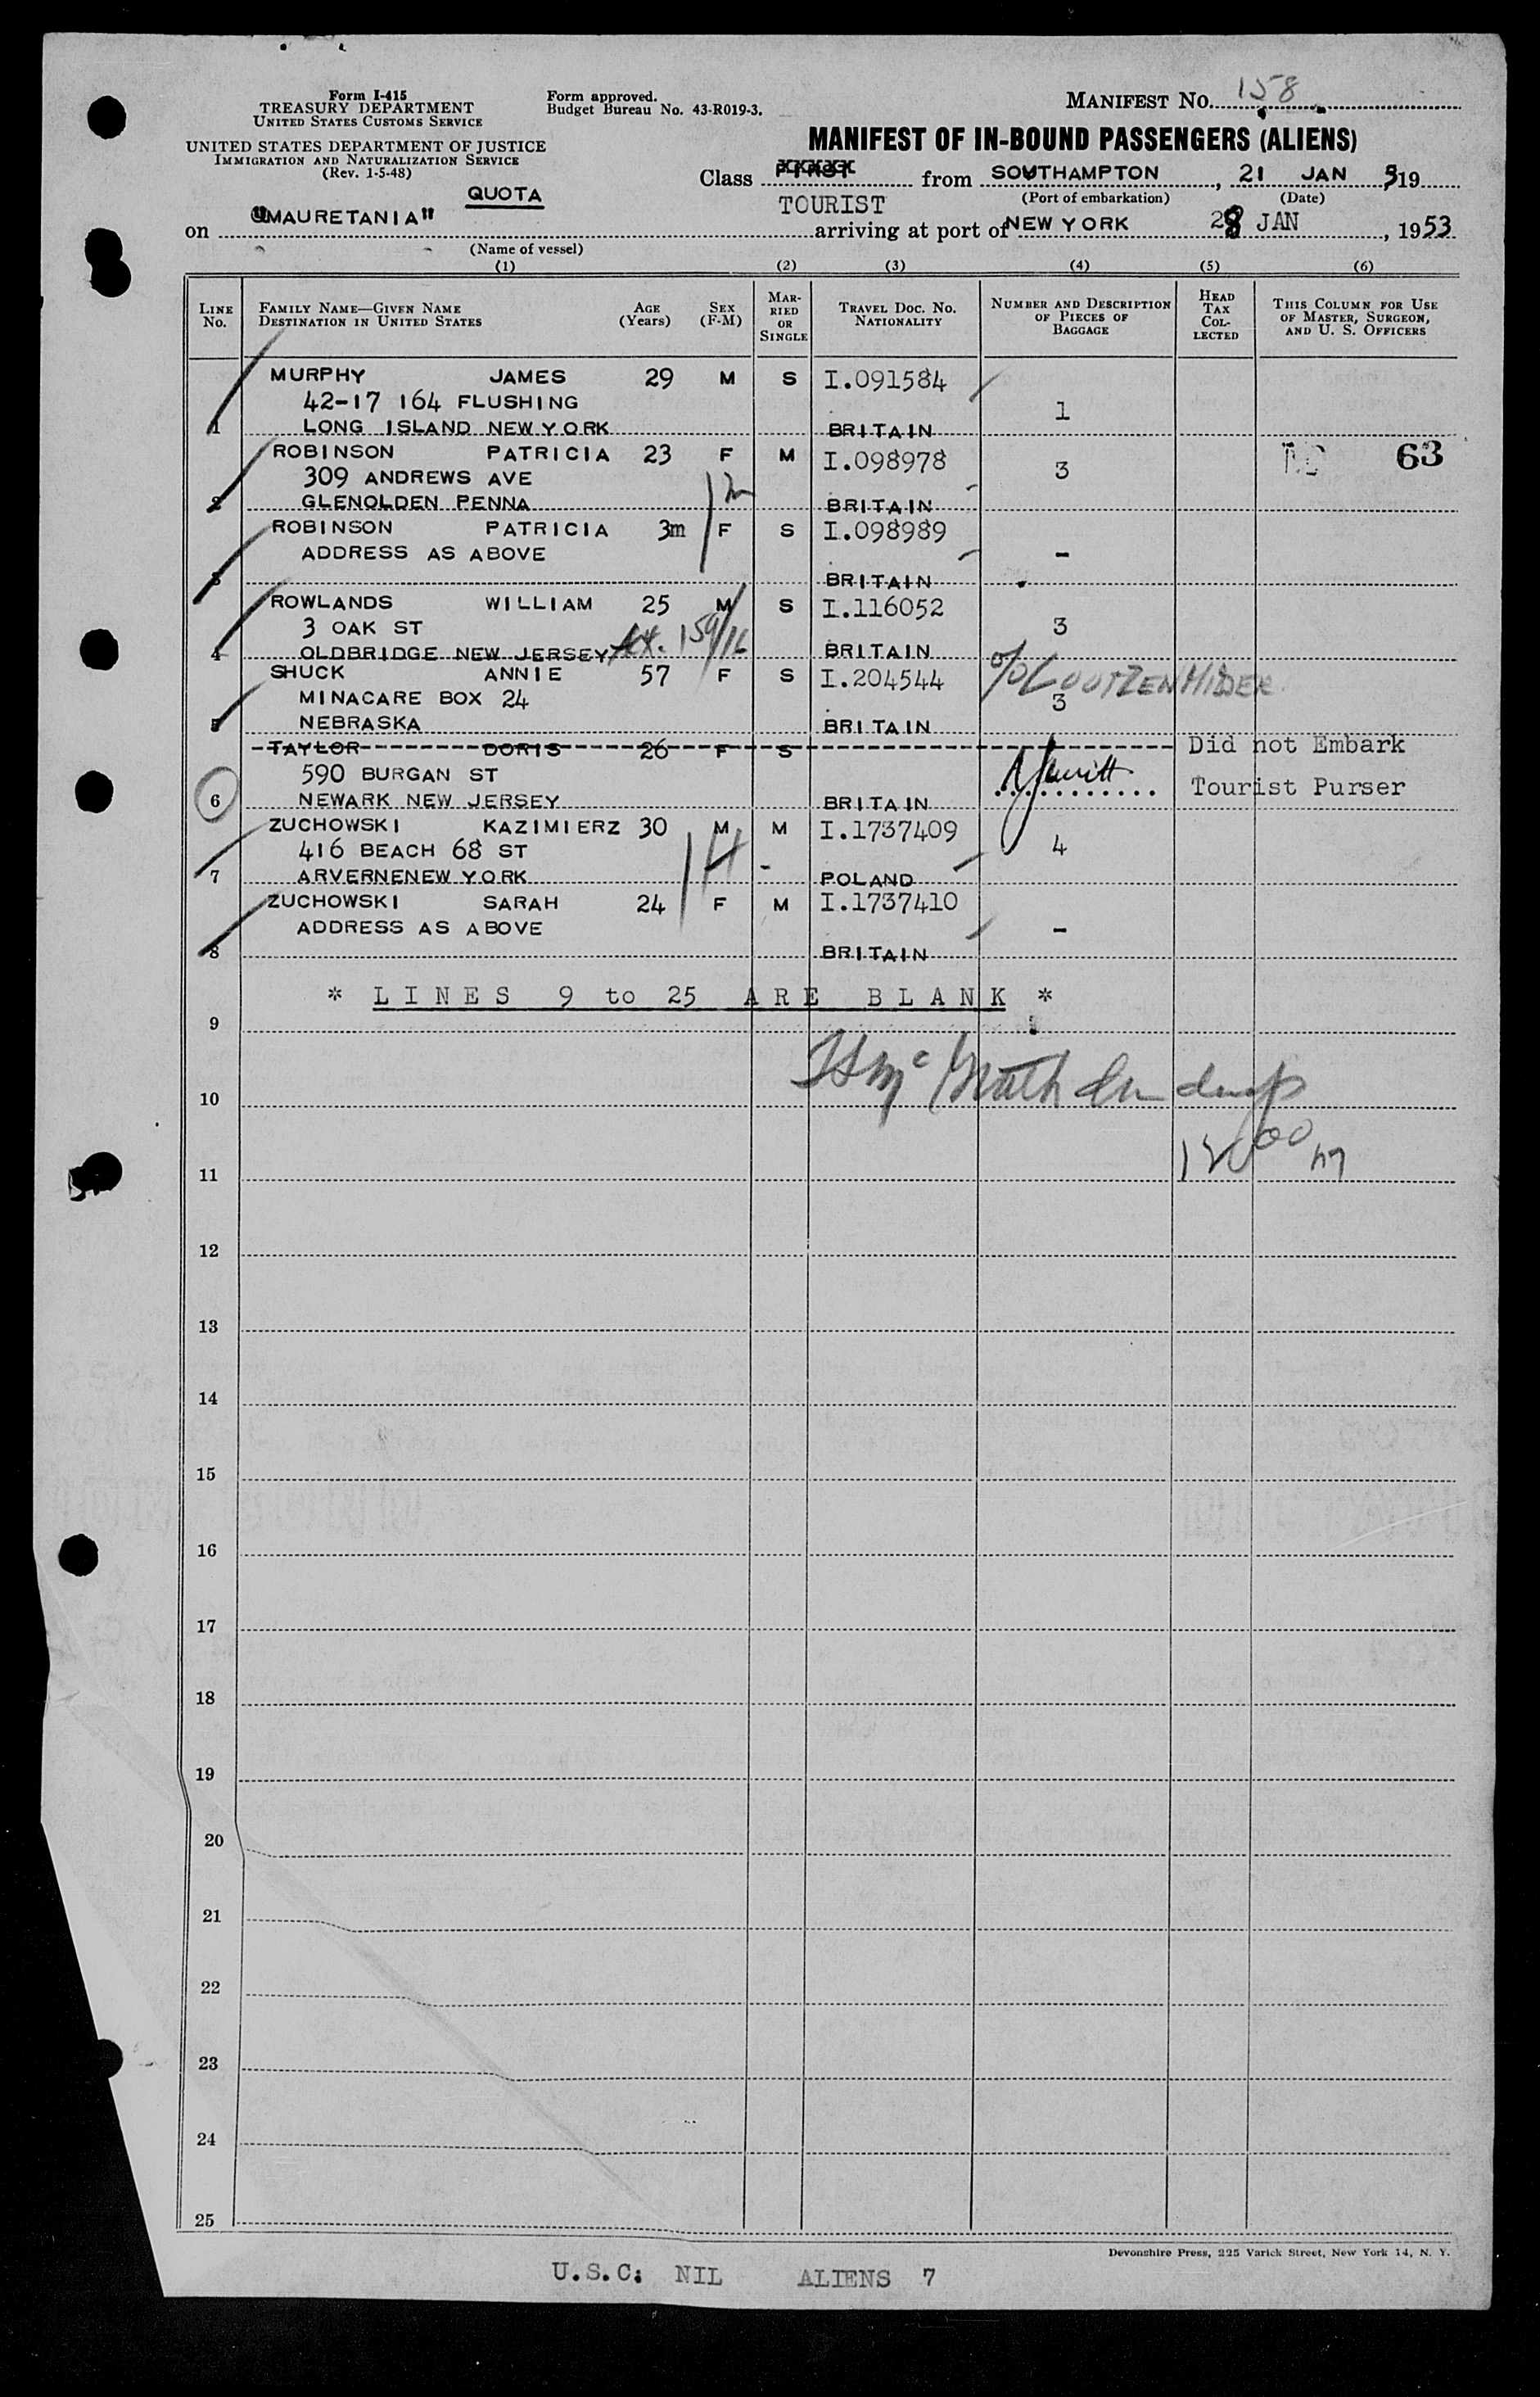 Form I-415
TREASURY DEPARTMENT
UNITED STATES CUSTOMS SERVICE
UNITED STATES DEPARTMENT OF JUSTICE
IMMIGRATION AND NATURALIZATION SERVICE
(Rev. 1-5-48)
Form approved.
Budget Bureau No. 43-R019-3.
MANIFEST NO. 158
MANIFEST OF IN-BOUND PASSENGERS (ALIENS)
Class FIRST from SOUTHAMPTON, 21 JAN 519
TOURIST (Port of embarkation) (Date)
QUOTA
on "MAURETANIA" arriving at port of NEW YORK 28 JAN, 1953
(Name of vessel)
(1) (2) (3) (4) (5) (6)
LINE No. FAMILY NAME—GIVEN NAME DESTINATION IN UNITED STATES AGE (Years) SEX (F-M) MARRIED OR SINGLE TRAVEL DOC. NO. NATIONALITY NUMBER AND DESCRIPTION OF PIECES OF BAGGAGE HEAD TAX COLLECTED THIS COLUMN FOR USE OF MASTER, SURGEON, AND U. S. OFFICERS
MURPHY JAMES 29 M S I.091584
42-17 164 FLUSHING 1
1 LONG ISLAND NEW YORK BRITAIN
ROBINSON PATRICIA 23 F M I.098978 63
309 ANDREWS AVE 3
2 GLENOLDEN PENNA BRITAIN
ROBINSON PATRICIA 3m F S I.098989
ADDRESS AS ABOVE -
3 BRITAIN
ROWLANDS WILLIAM 25 M S I.116052
3 OAK ST 3
4 OLDBRIDGE NEW JERSEY BRITAIN
SHUCK ANNIE 57 F S I.204544
MINACARE BOX 24 3
5 NEBRASKA BRITAIN
TAYLOR DORIS 26 F S Did not Embark
590 BURGAN ST Tourist Purser
6 NEWARK NEW JERSEY BRITAIN
ZUCHOWSKI KAZIMIERZ 30 M M I.1737409
416 BEACH 68 ST 4
7 ARVERNENEW YORK POLAND
ZUCHOWSKI SARAH 24 F M I.1737410
ADDRESS AS ABOVE -
8 BRITAIN
* LINES 9 to 25 ARE BLANK *
9
10
11
12
13
14
15
16
17
18
19
20
21
22
23
24
25
Devonshire Press, 225 Varick Street, New York 14, N. Y.
U.S.C: NIL ALIENS 7